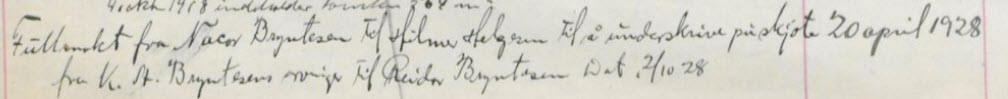 1918 indeholder
Fullmakt fra Nacor Bryntesen til Hilmer Helgesen til å underskrive på skjøte 20 april 1928
fra K. A. Bryntesens arvinger til Reidar Bryntesen Dat. 2/10 28